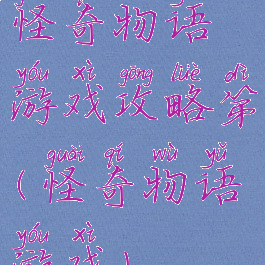 怪奇物语
yóu xì gōng lüè dì
游戏攻略第
guài qí wù yǔ
(怪奇物语
yóu xì
游戏)